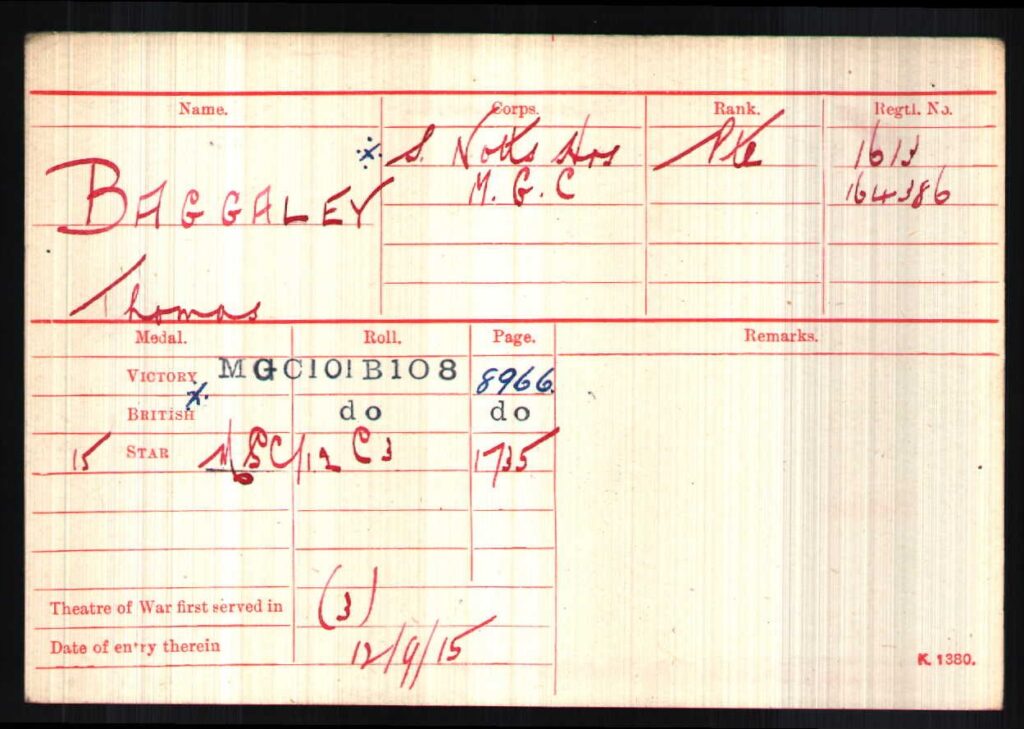 Name. Corps. Rank. Regtl. No.
BAGGALEY x. S. Notts Hrs Pte 1613
M.G.C 164386
Thomas
Medal. Roll. Page. Remarks.
VICTORY MGC101B108 8966.
x.
BRITISH do do
15 STAR MGC/12 C3 1735
Theatre of War first served in (3)
Date of entry therein 12/9/15
K. 1380.